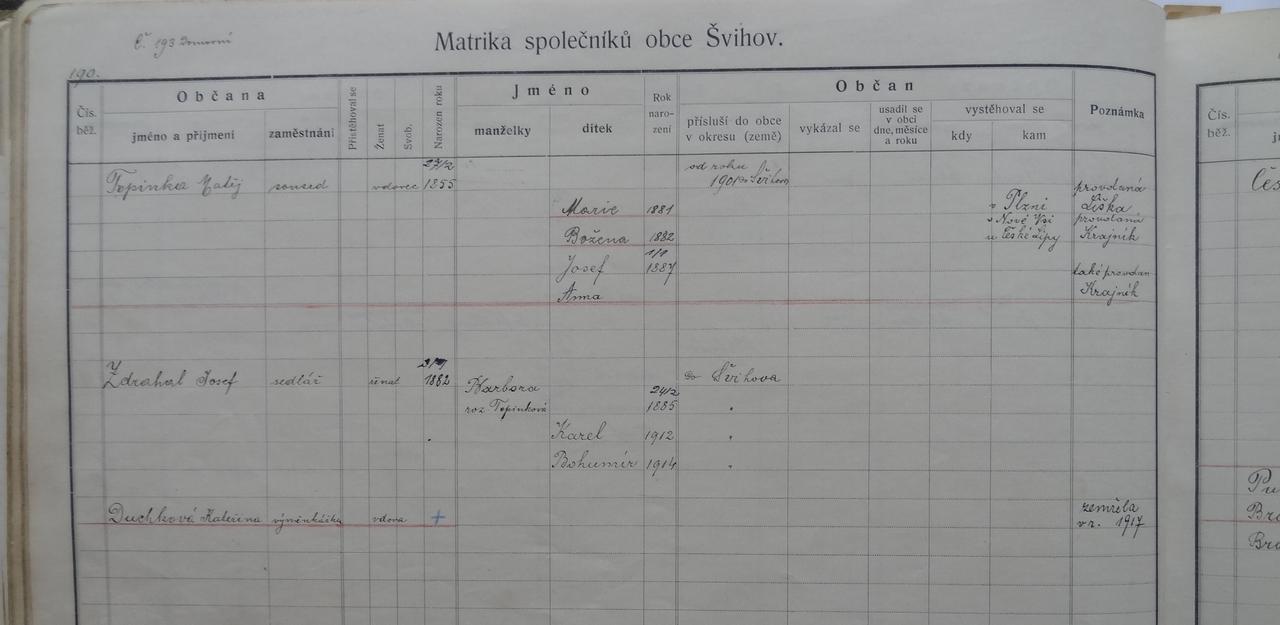 Č 193
Matrika společníků obce Švihov.
190.
Čís. běž.
Občana
jméno a přijmení
zaměstnání
Přistěhoval se
Ženat
Svob.
Narozen roku
Jméno
manželky
dítek
Rok naro- zení
Občan
přísluší do obce v okresu (země)
vykázal se
usadil se v obci dne, měsíce a roku
vystěhoval se
kdy
kam
Poznámka
Čís. běž.
27/2 od roku
Topinka Matěj soused vdovec 1855 1901 do Švihova provdaná
Marie 1881 v Plzni Liška
v Nové Vsi provdaná
Božena 1882 u České Lípy Krajník
1/1
Josef 1887 také provdan
Anna Krajník
Zdrahal Josef sedlář ženat 1882 do Švihova
Barbora 24/2
roz Topinková 1885 "
Karel 1912 "
Bohumír 1914 "
zemřela
Duchková Kateřina výminkářka vdova + v r. 1917